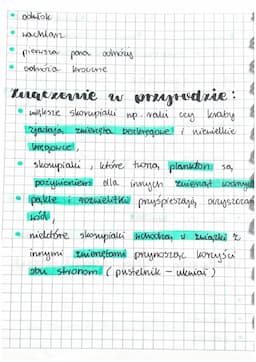 odwłok
wachlarz
pierwsza para odnóży
odnóża kroczne
Znaczenie w przyrodzie:
większe skorupiaki np. raki czy kraby
zjadają zwierzęta bezkręgowe i niewielkie
kręgowce,
skorupiaki, które tworzą plankton są
pożywieniem dla innych zwierząt wodnych
pąkle i rozwielitki przyśpieszają oczyszczan
wód,
niektóre skorupiaki wchodzą w związki z
innymi zwierzętami przynosząc korzyści
obu stronom (pustelnik - ukwiał)